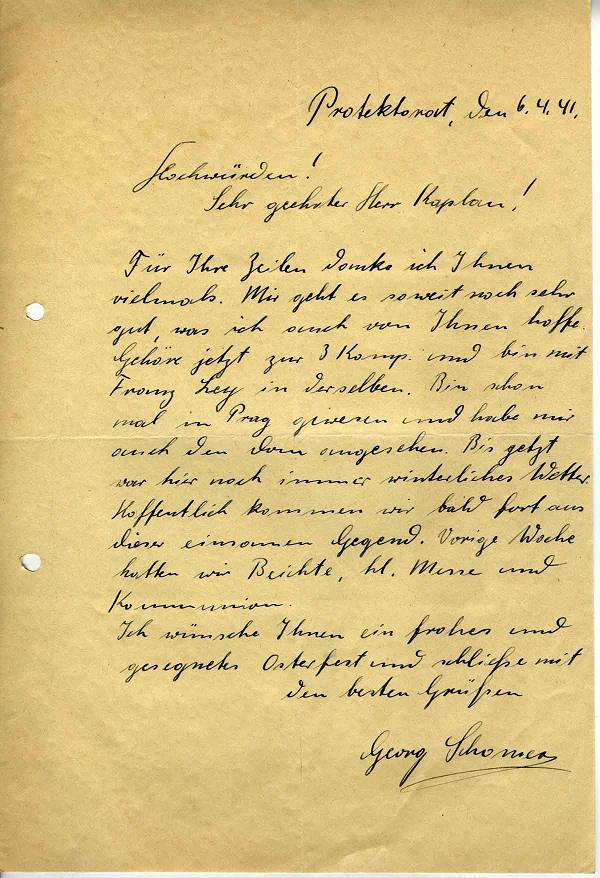 Protektorat, den 6.4.41.
Hochwürden!
Sehr geehrter Herr Kaplan!
Für Ihre Zeilen danke ich Ihnen
vielmals. Mir geht es soweit noch sehr
gut, was ich auch von Ihnen hoffe.
Gehöre jetzt zur 3 Komp. und bin mit
Franz Ley in derselben. Bin schon
mal in Prag gewesen und habe mir
auch den Dom angesehen. Bis jetzt
war hier noch immer winterliches Wetter.
Hoffentlich kommen wir bald fort aus
dieser einsamen Gegend. Vorige Woche
hatten wir Beichte, hl. Messe und
Kommunion.
Ich wünsche Ihnen ein frohes und
gesegnetes Osterfest und schließe mit
den besten Grüßen
Georg Schomer